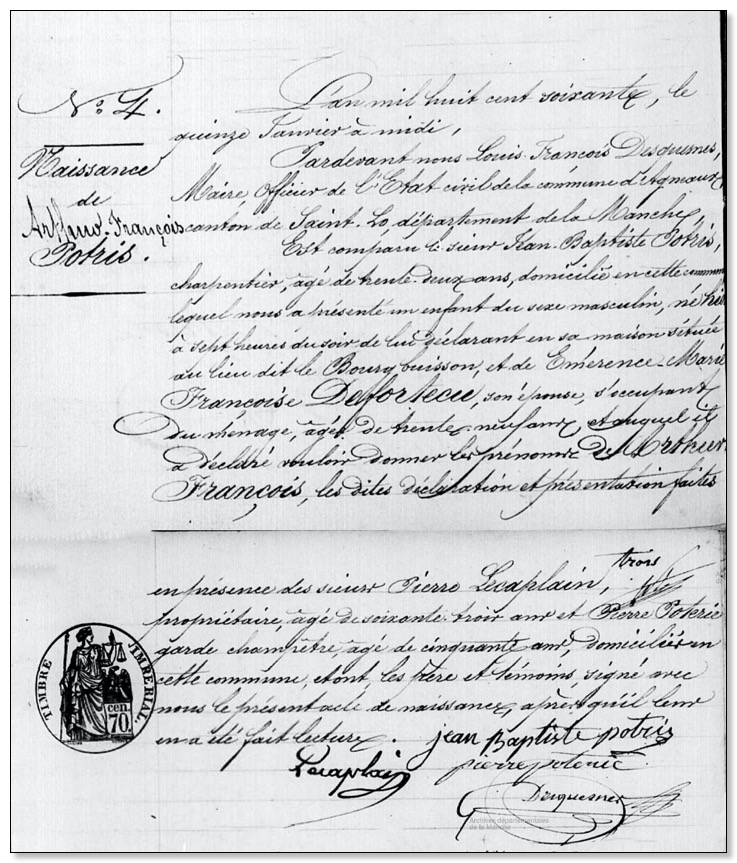 N.o 4.
Naissance
de
Arthur François
Potris.
L'an mil huit cent soixante, le
quinze Janvier à midi,
Pardevant nous Louis François Desquesnes,
Maire, Officier de l'Etat civil de la commune d'Agneaux,
canton de Saint-Lo, département de la Manche,
Est comparu le sieur Jean-Baptiste Potris,
charpentier, âgé de trente-deux ans, domicilié en cette commune
lequel nous a présenté un enfant du sexe masculin, né hier
à sept heures du soir de lui déclarant en sa maison située
au lieu dit le Bourg buisson, et de Emérence Marie
Françoise Deffortecu, son épouse, s'occupant
du ménage, âgée de trente-neuf ans, et auquel il
a déclaré vouloir donner les prénoms de Arthur
François, les dites déclaration et présentation faites
en présence des sieurs Pierre Lecaplain, trois
propriétaire, âgé de soixante-trois ans et Pierre Poterie
garde champêtre, âgé de cinquante ans, domiciliés en
cette commune, et ont, les père et témoins signé avec
nous le présent acte de naissance, après qu'il leur
en a été fait lecture.
jean Baptiste potris
Lecaplain
pierre poterie
Desquesnes
TIMBRE IMPERIAL.
70 cen.
Archives départementales
de la Manche